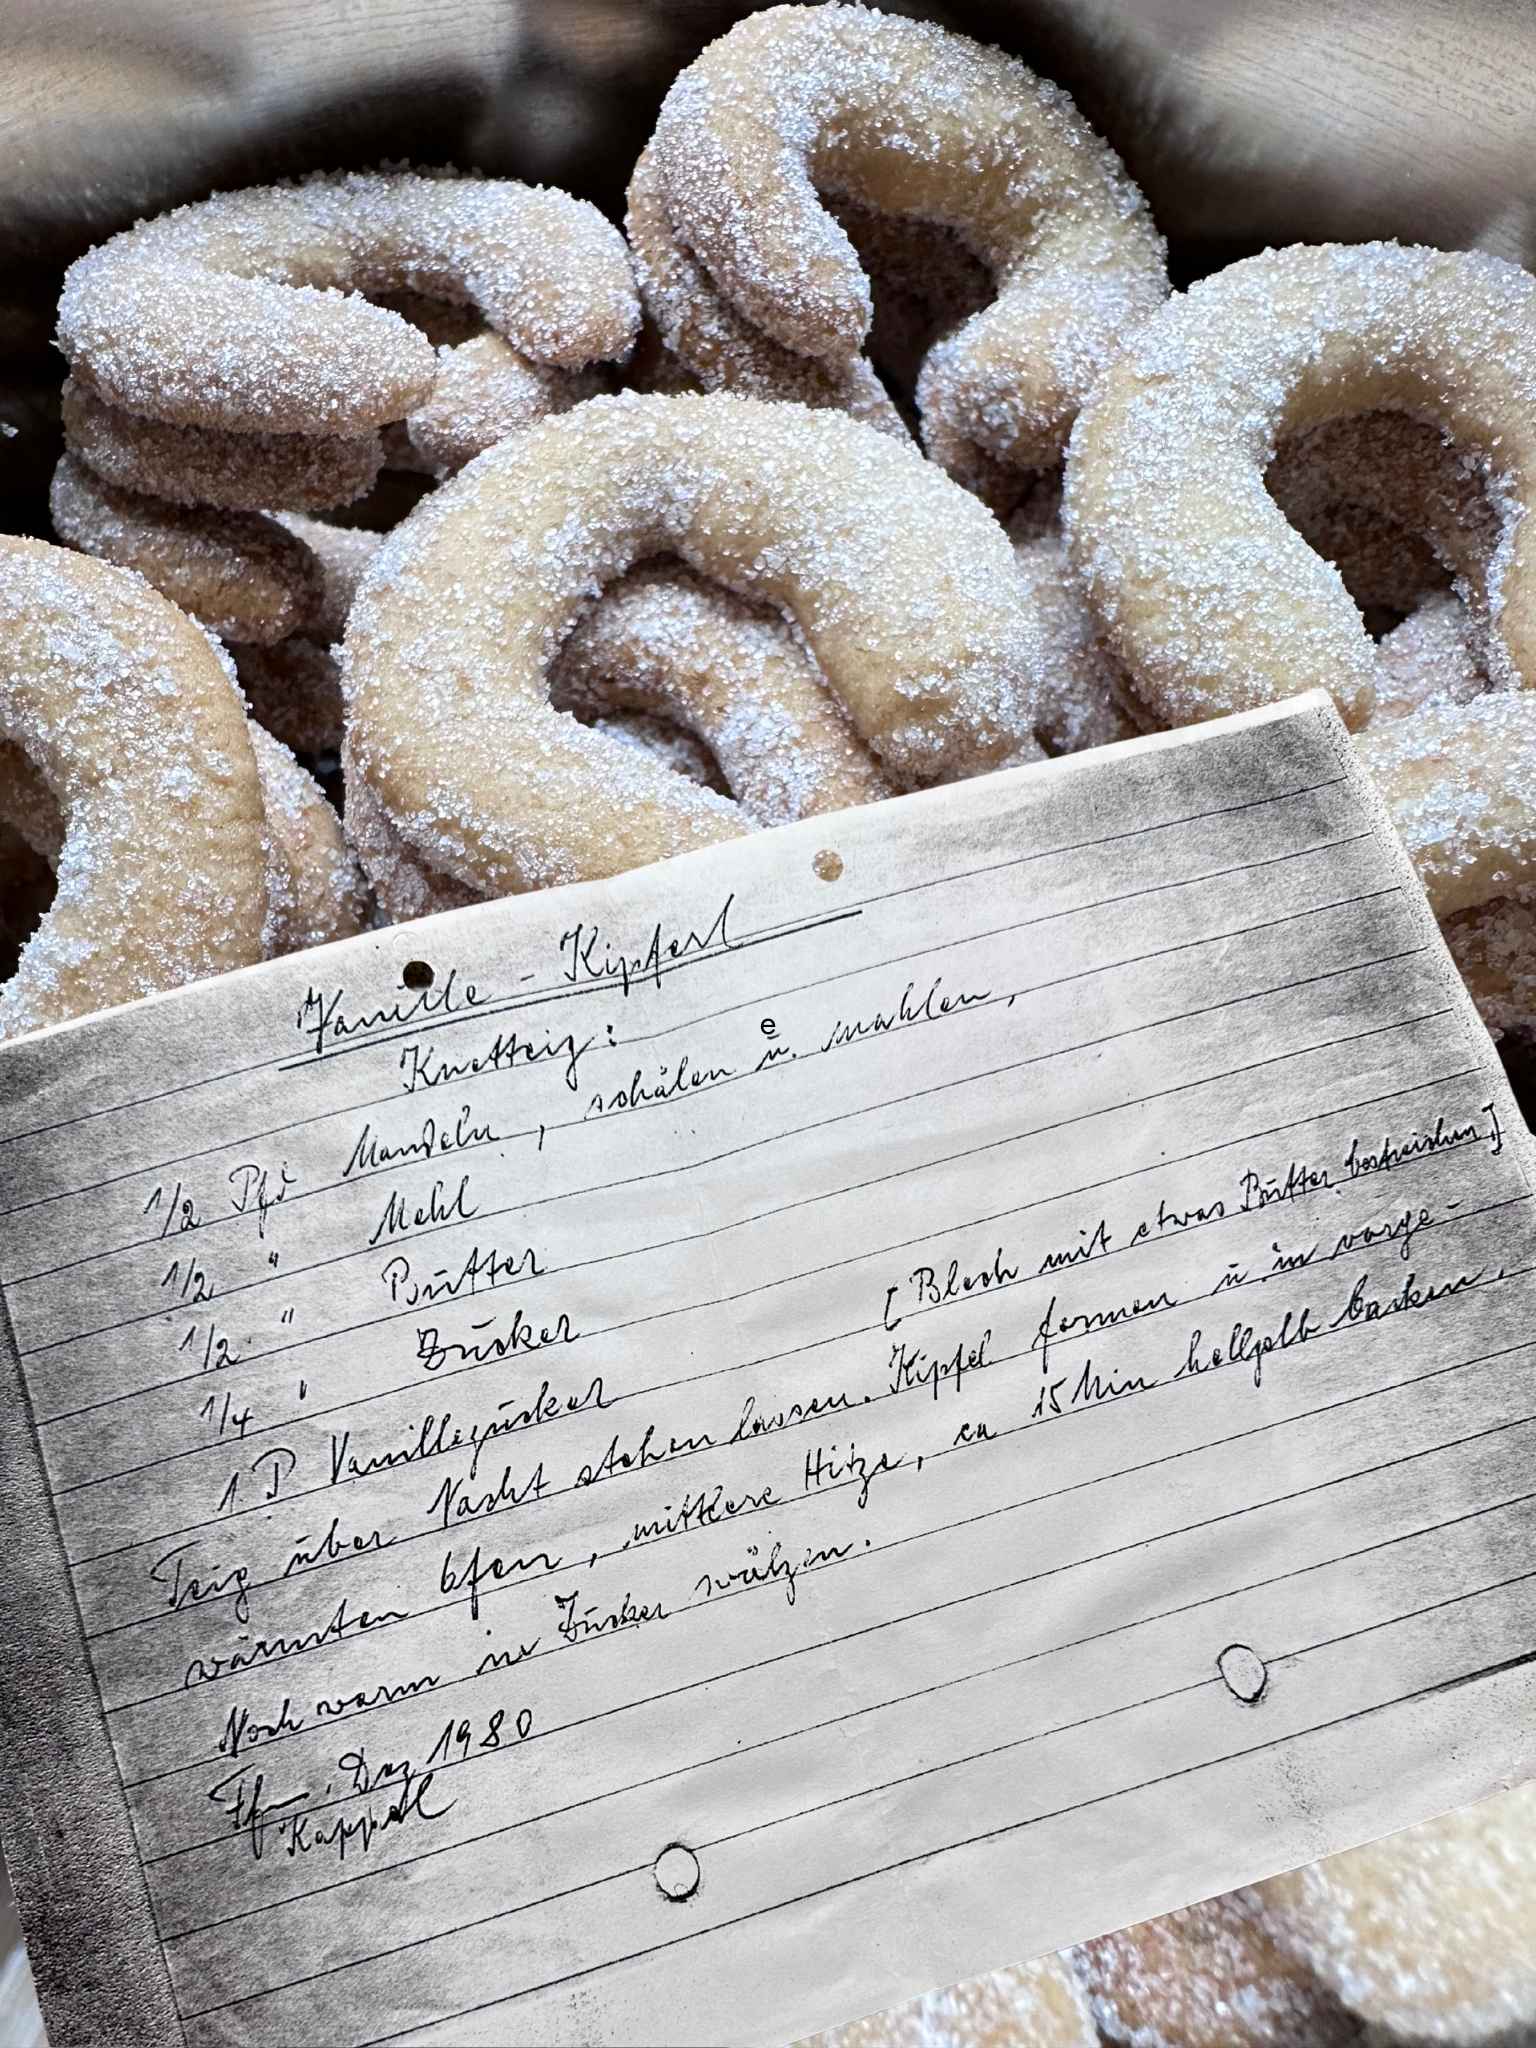 Vanille - Kipferl
Knetteig:
e
1/2 Pfd Mandeln, schälen u. mahlen,
1/2 " Mehl
1/2 " Butter
1/4 " Zucker
1 P Vanillezucker
[Blech mit etwas Butter bestreichen]
Teig über Nacht stehen lassen. Kipfel formen u in vorge-
wärmten Ofen, mittlere Hitze, ca 15 Min hellgelb backen.
Noch warm in Zucker wälzen.
Ffm, Dez 1980